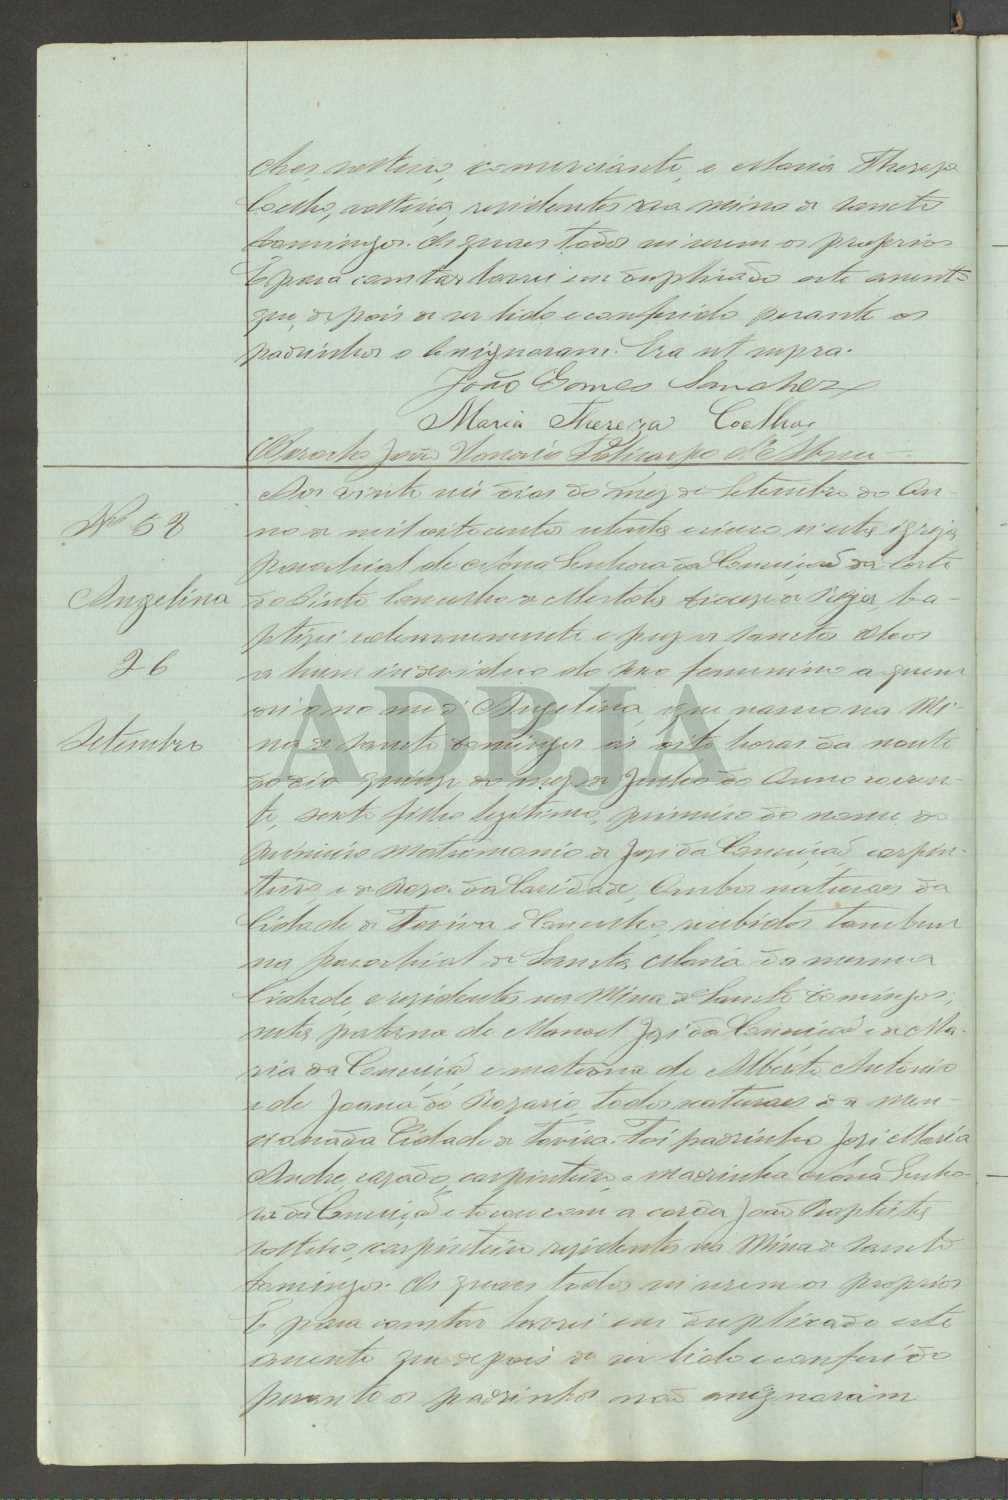 ches, solteiro, comerciante, e Maria Thereza
Coelho, solteira, residentes na Mina de Sancto
Domingos. Os quaes todos sei serem os proprios
E para constar lavrei em duplicado este assento
que, depois de ser lido e conferido perante os
padrinhos o assignaram. Era ut supra.
João Gomes Sanchez
Maria Thereza Coelho
O Parocho João Honorio Policarpo d'
Nº 58
Angelina
26
Setembro
Aos vinte seis dias do mez de Setembro do An-
no de mil oito centos oitenta e cinco n'esta igreja
parochial de Nossa Senhora da Conceição da Corte
do Pinto Concelho de Mertola diocese de Beja, ba-
ptizei solemnemente e puz os sanctos oleos
a hum individuo do sexo femenino a quem
dei o nome d'Angelina, que nasceo na Mi-
na de Sancto Domingos ás oito horas da noute
do dia quinze do mez de Junho do Anno corren-
te, sexto filho legitimo, primeiro do nome, do
primeiro matrimonio de José da Conceição, carpin-
teiro, e de Roza da Caridade, Ambos naturaes da
Cidade de Tavira e Concelho, recebidos tambem
na parochial de Sancta Maria da mesma
Cidade, e residentes na Mina de Sancto Domingos;
neta paterna de Manoel José da Conceição e de Ma-
ria da Conceição e materna de Alberto Antonio
e de Joana do Rozario, todos naturaes da men-
cionada Cidade de Tavira. Foi padrinho José Maria
Andre, cazado, carpinteiro, e madrinha Nossa Senho-
ra da Conceição e tocou com a coroa João Baptista
solteiro, carpinteiro residentes na Mina de Sancto
Domingos. Os quaes todos sei serem os proprios
E para constar lavrei em duplicado este
assento que depois de ser lido e conferido
perante os padrinhos não assignaram
ADBJA